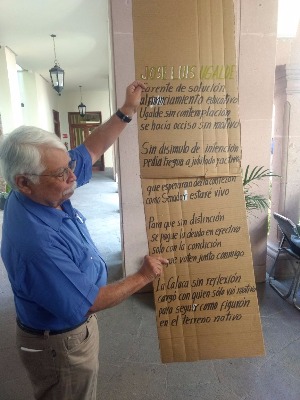 JOSE LUIS UGALDE
Carente de solución
al financiamiento educativo
Ugalde sin contemplación
se hacía occiso sin motivo
Sin disimulo de intención
pedía tregua a jubilado
que esperaran de la
como Sandra estare vivo
Para que sin distinción
se pague lo deudo en efectivo
solo con la condición
que voten junto conmigo
La Calaca sin reflexión
cargó con quien solo vió
para seguir como figurón
en el terreno nativo